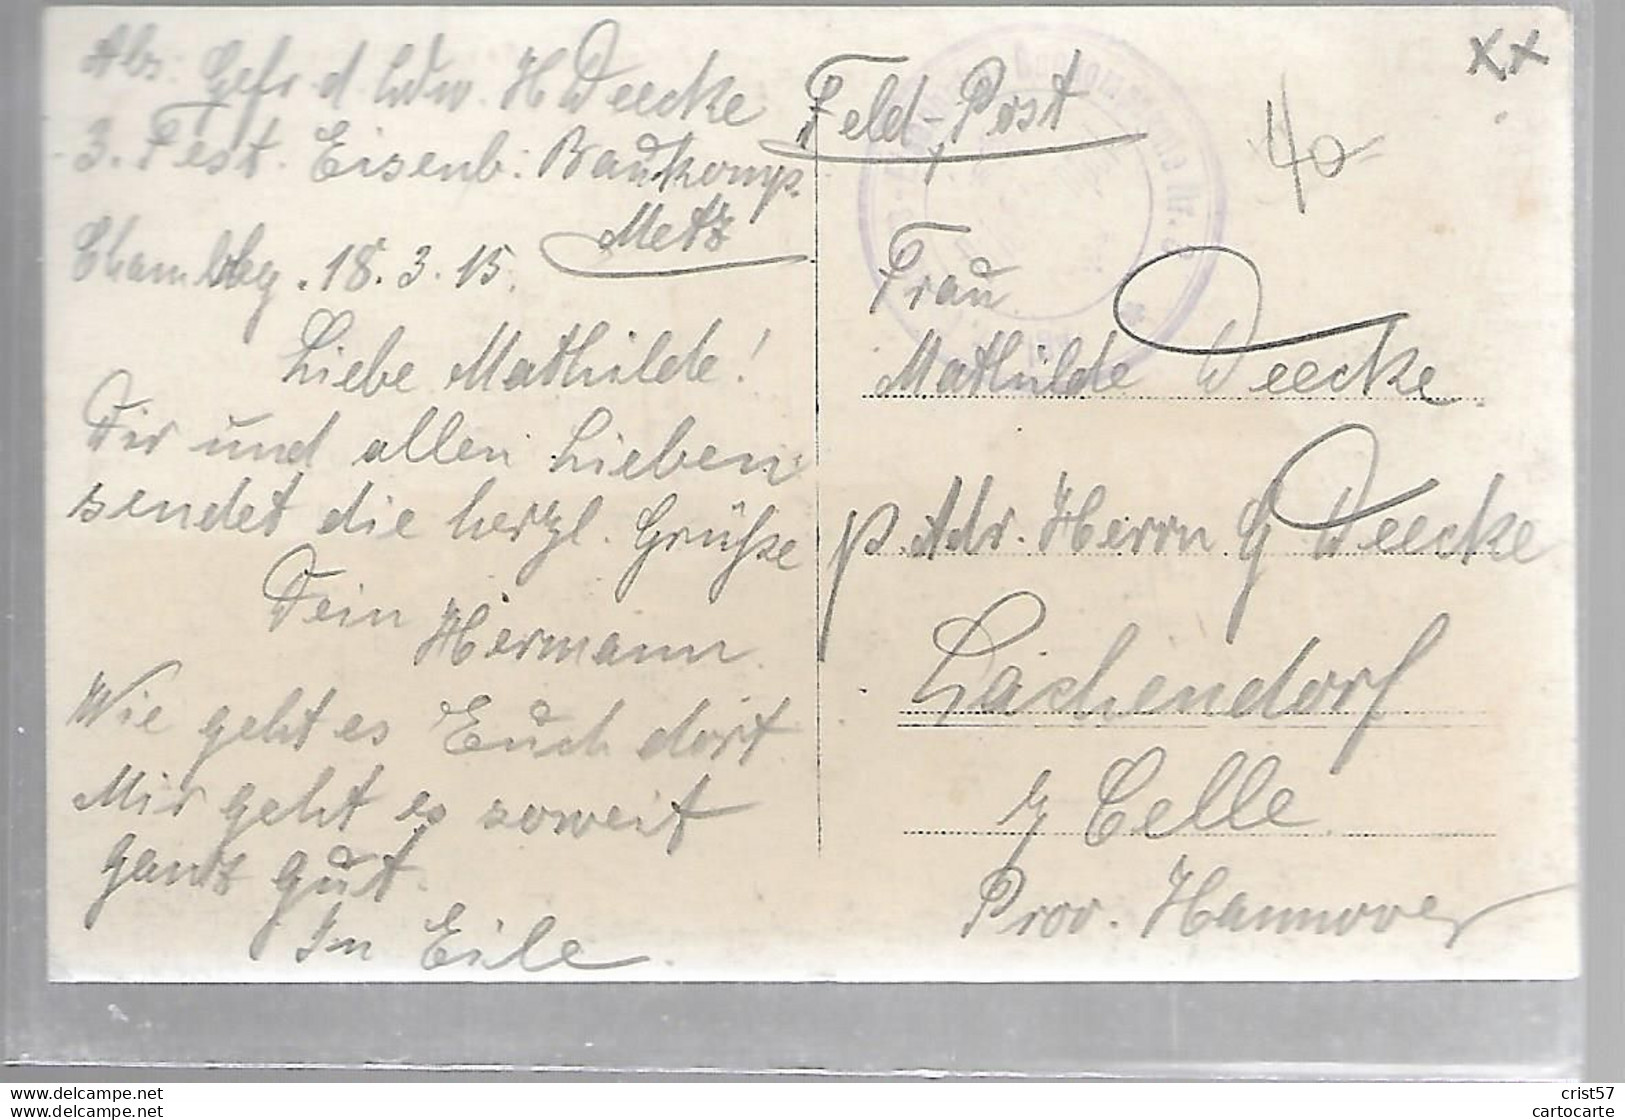 Abs: Gefr d. Ldw. H Deecke
3. Fest. Eisenb: Baukomp.
Metz
18.3.15.
Liebe Mathilde!
Dir und allen Lieben
sendet die herzl. Grüße
Dein
Hermann.
Wie geht es Euch dort
Mir geht es soweit
ganz gut.
In Eile.
Feld-Post
XX
40
Frau
Mathilde Deecke
p. Adr. Herrn G Deecke
Lachendorf
b/ Celle
Prov. Hannover
crist57
cartocarte